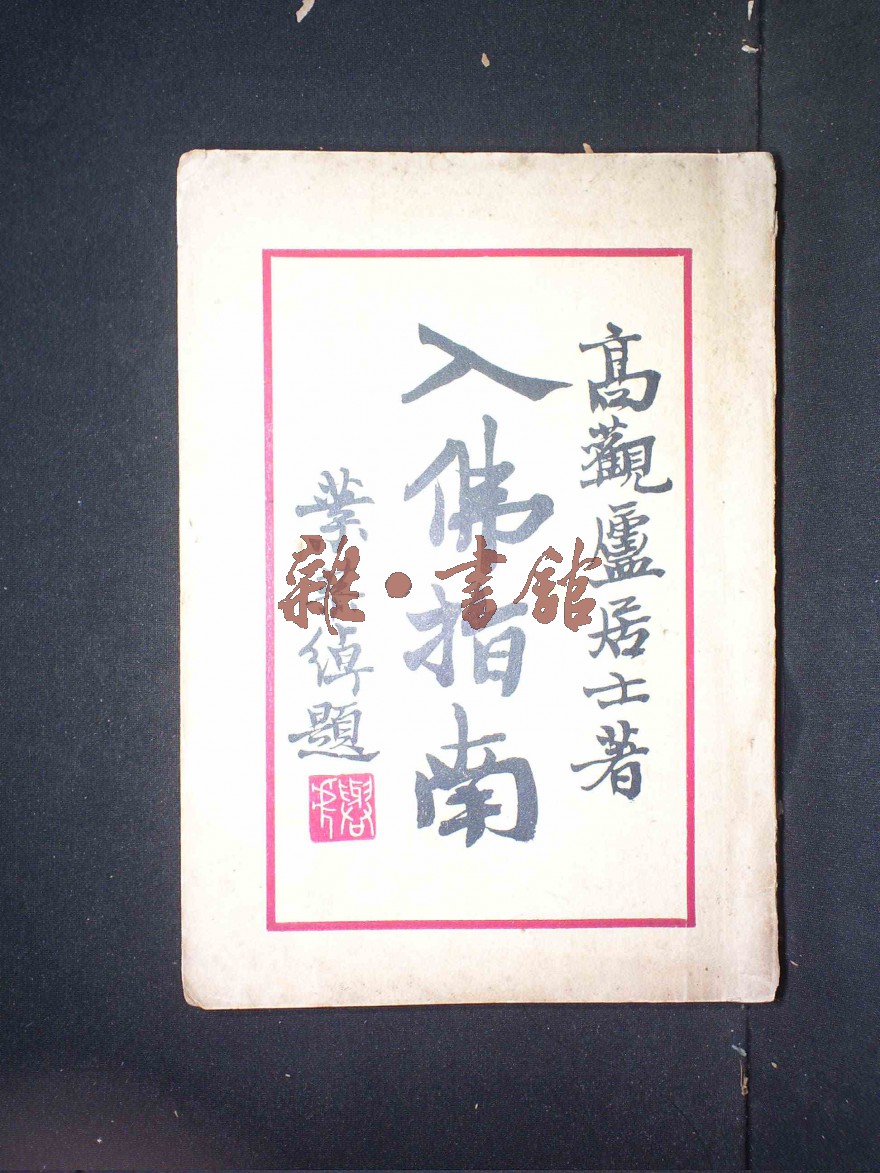 高觀廬居士著
入佛指南
葉 綽題
雜·書館